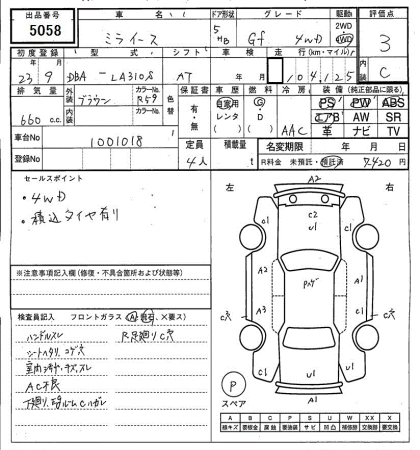 出品番号 車名 ドア形状 グレード 駆動 評価点
5058 ミライース 5 HB Gf 4WD 2WD 4WD 3
初度登録 型式 シフト 車検 走行(km・マイル) 内装
23年9月 DBA-LA310S AT 年 月 104,125 C
排気量 外装 色 カラーNo. 色替 保証書 車歴 燃料 冷房 装備(純正部品に限る)
660 c.c. ブラウン R59 有・無 自家用 レンタ ( ) G・D ( ) AAC PS PW ABS
エアB AW SR
革 ナビ TV
内装 カラーNo.
車台No 1001018 定員 積載量 名変期限 年 月 日
登録No 4人 R料金 未預託・預託済 7420円
セールスポイント
・4WD
・積込タイヤ有り
左 右
A2
C1 C2 C1
U1 U1
A2 Pガゲ A2
A3 A1
C穴 C穴
C1 U1 U1
A1
※注意事項記入欄(修復・不具合箇所および状態等)
検査員記入 フロントガラス(A、飛石、X要ス)
ハンドルスレ R足廻りC穴
シートヘタリ、コゲ穴
室内
AC不良
下廻り、
P
スペア
A B C P S U W X XX
線キズ 要板金 腐蝕 要塗装 サビ 凹凸 補修跡 交換跡 要交換